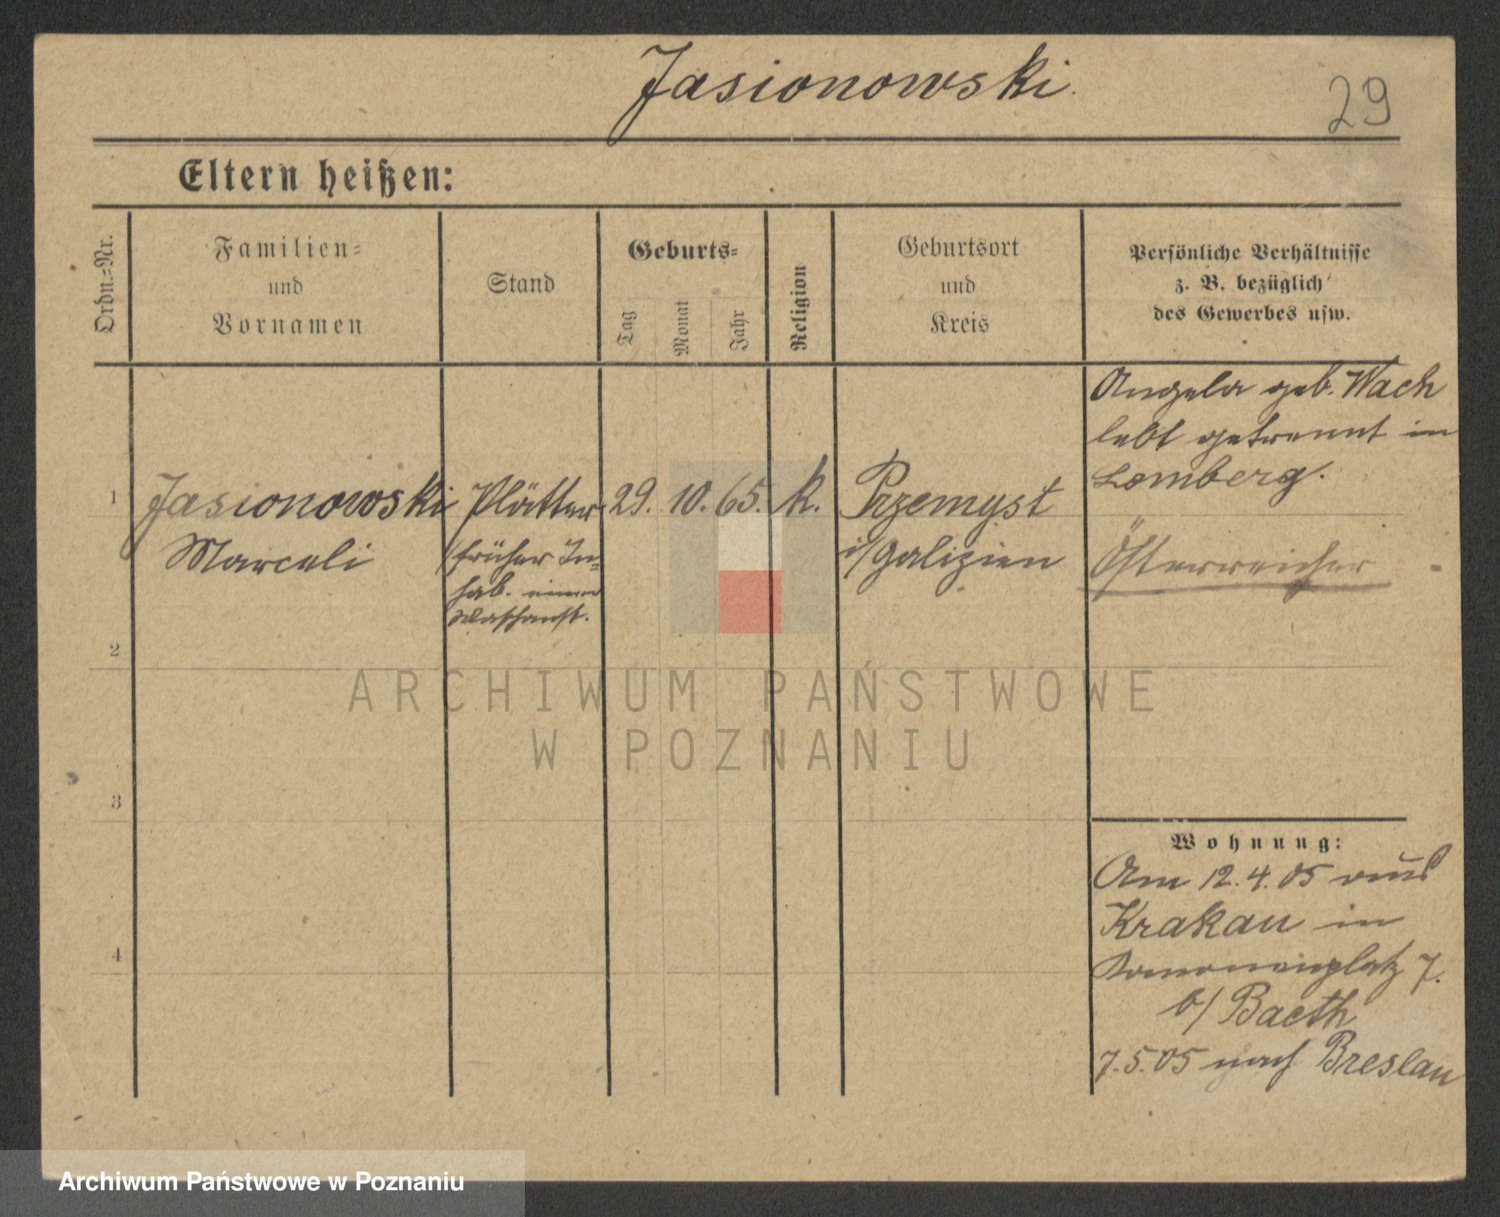 Jasionowski.
29
Eltern heißen:
Ordn.-Nr.
Familien-
und
Vornamen
Stand
Geburts-
Tag
Monat
Jahr
Religion
Geburtsort
und
Kreis
Persönliche Verhältnisse
z. B. bezüglich
des Gewerbes usw.
1
Jasionowski
Marceli
Plätter
(früher In-
hab. einer
Waschanst.
29. 10. 65. k.
Przemyst
i/Galizien
Angela geb. Wach
lebt getrennt in
Lemberg.
Österreicher
2
3
4
Wohnung:
Am 12.4.05 aus
Krakau in
7.
b/ Baeth
7.5.05 nach Breslau
ARCHIWUM PAŃSTWOWE
W POZNANIU
Archiwum Państwowe w Poznaniu